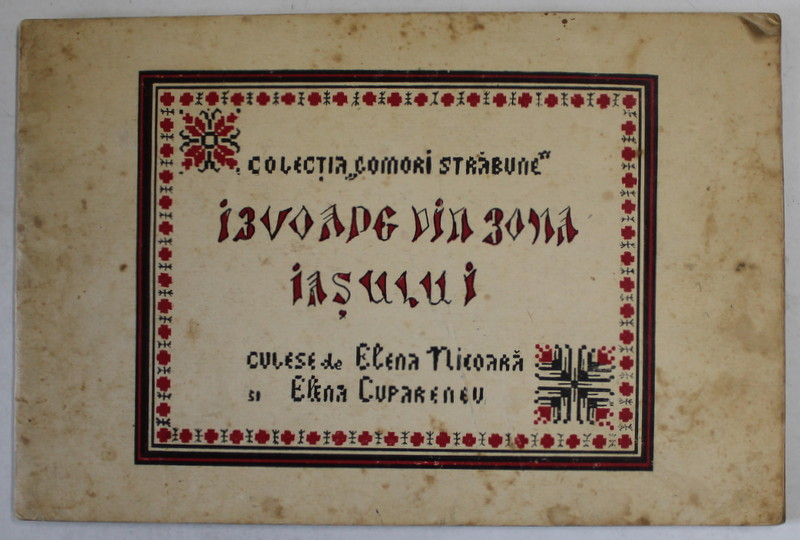 COLECȚIA „COMORI STRĂBUNE"
IZVOADE DIN ZONA
IAȘULUI
CULESE de Elena Nicoară
si Elena Cupareneu